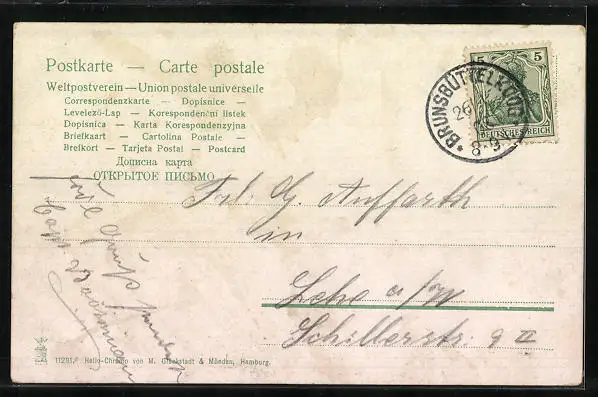 Postkarte — Carte postale
Weltpostverein — Union postale universelle
Correspondenzkarte – Dopisnice –
Levelező-Lap – Korespondenční lístek
Dopisnica – Karta Korespondenzyjna
Briefkaart – Cartolina Postale –
Brefkort – Tarjeta Postal – Postcard
Дописна карта
ОТКРЫТОЕ ПИСЬМО
5 5
DEUTSCHES REICH
BRUNSBÜTTELKOOG
26
8-9
Frl. G. Auffarth
in
Lehe a/W
Schillerstr. 9 II
Gruß
11291. Helio-Chromo von M. Glückstadt & Münden, Hamburg.